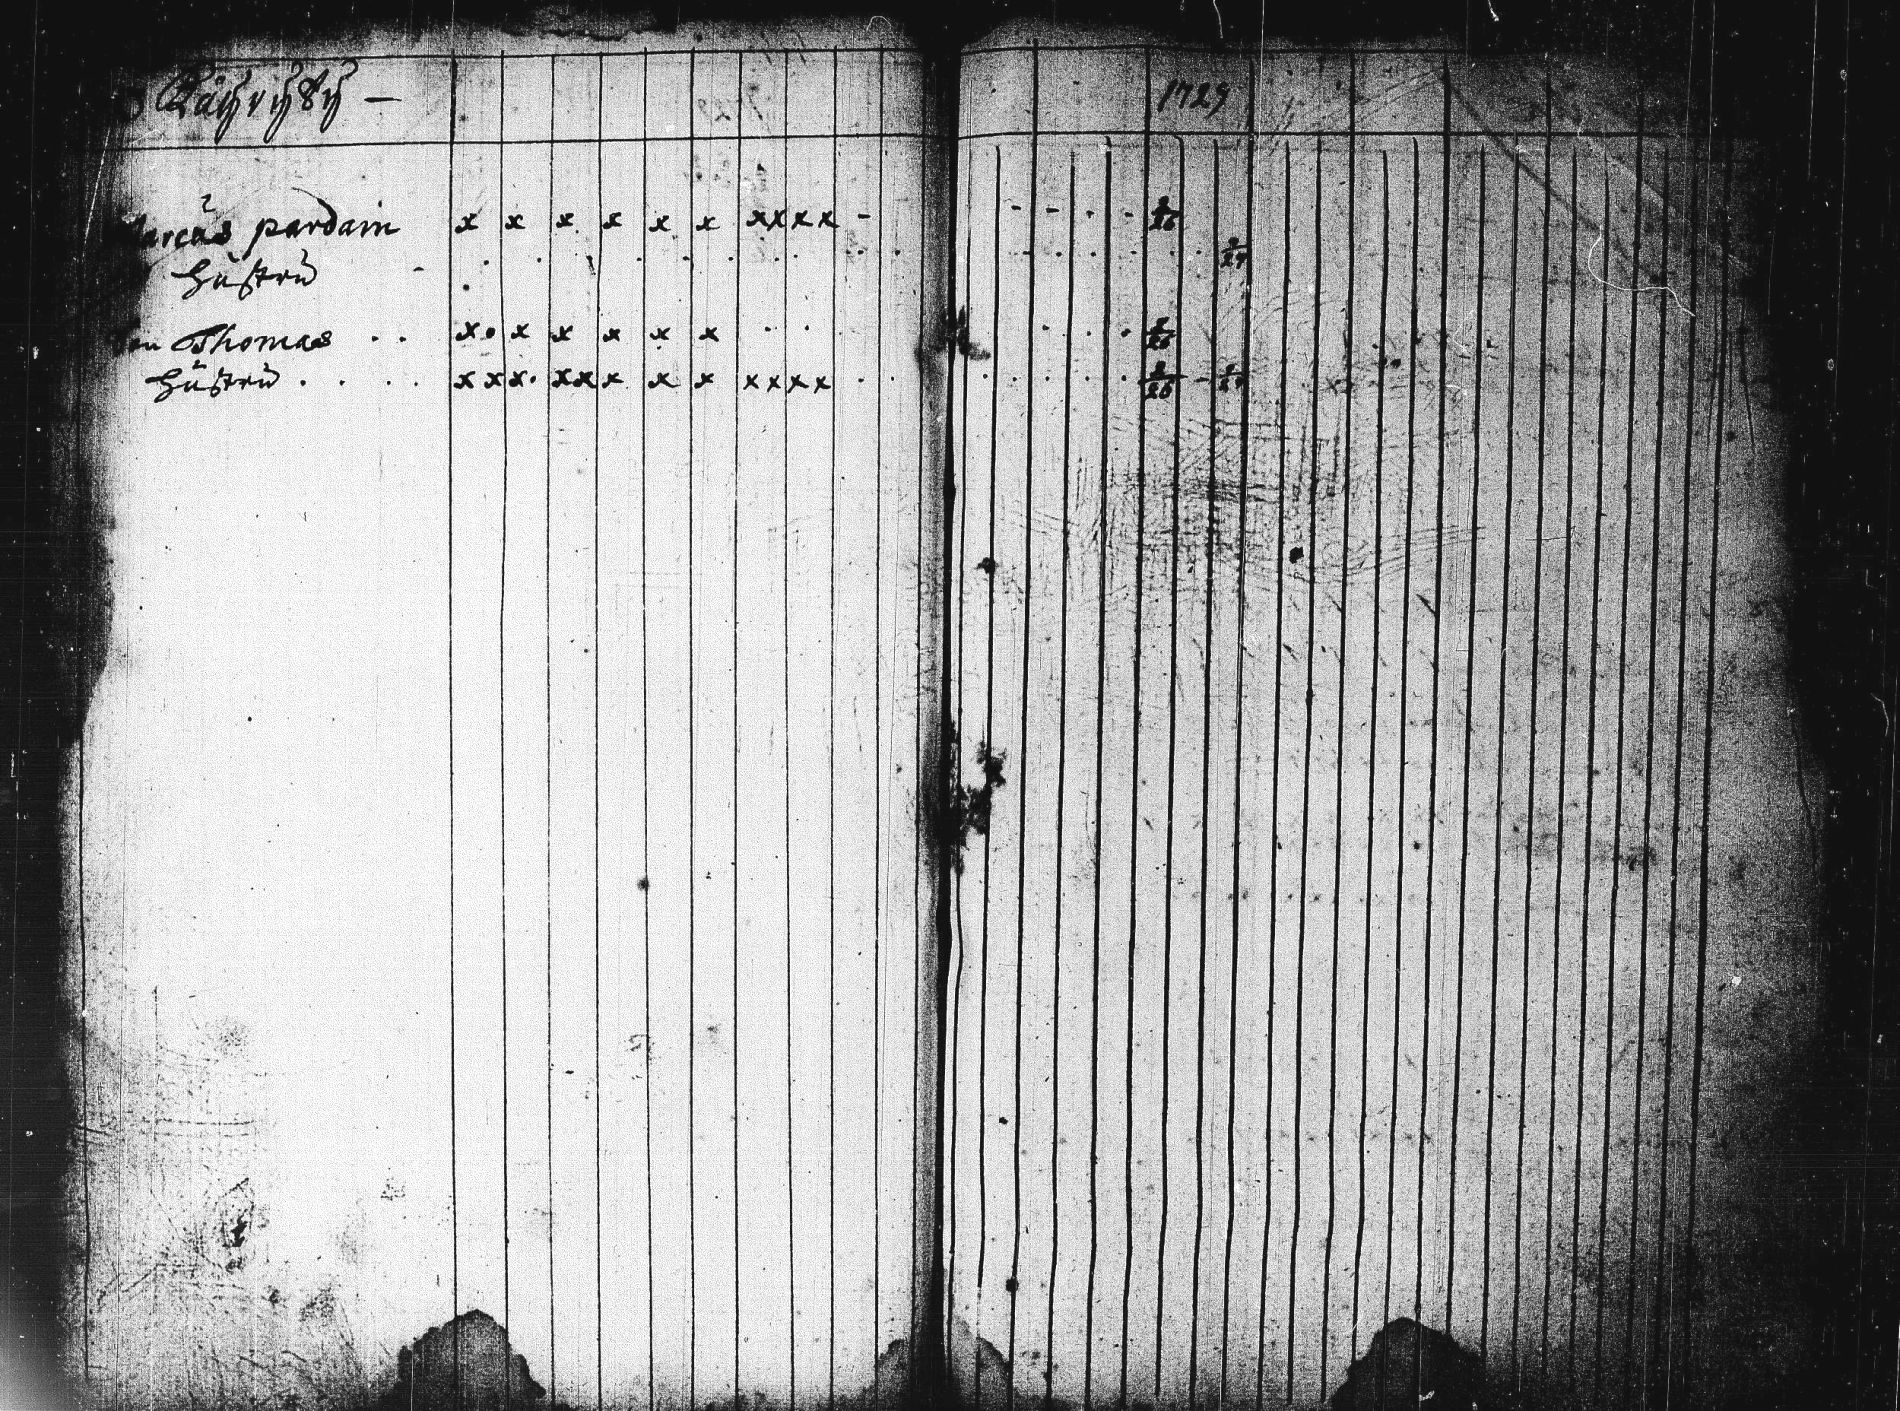 1729
Marcus pardain x x x x x x xxxx - - - - - 2/26
Hustru - . . . . . . . . . . . . . . 2/27
Thomas . . x. x x x x x . . . . . 2/26
Hustru . . . . xxx. xx x x x xxxx . . . . . . . 2/26 - 2/27